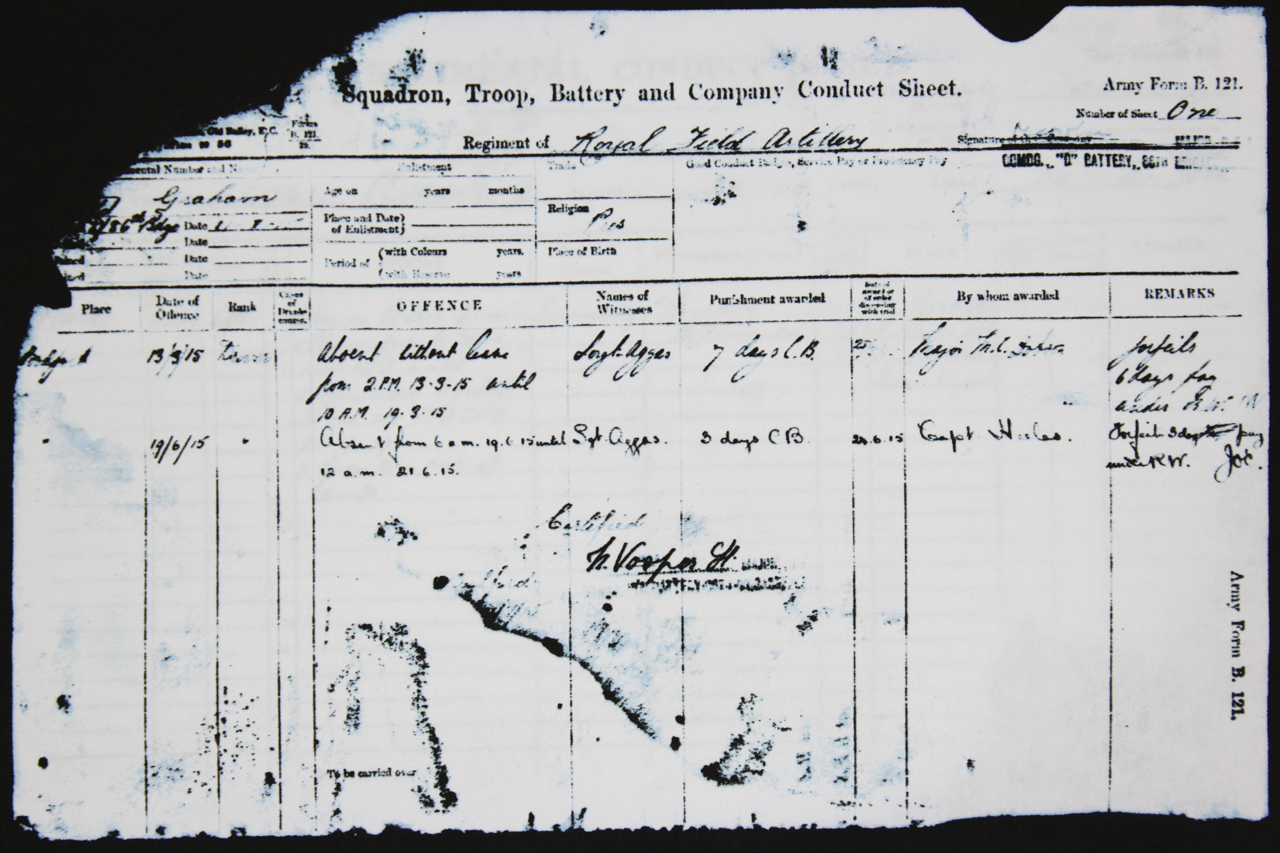 Squadron, Troop, Battery and Company Conduct Sheet.
Army Form B. 121.
Number of Sheet One
Old Bailey, E.C.
Forms
B. 121.
Regiment of Royal Field Artillery
Signature of
COMDG., "D" BATTERY, 86TH
Enlistment
Trade
Good Conduct Badges, Service Pay or Proficiency Pay
Graham
Age on years months
Religion
Pres
86th Bdge Date
Place and Date
of Enlistment
Date
Date
Period of
with Colours years.
with Reserve years
Place of Birth
Date
Place
Date of
Offence
Rank
Cases
of
Drunkenness
OFFENCE
Names of
Witnesses
Punishment awarded
By whom awarded
REMARKS
13/3/15
Absent without leave
Sergt Aggas
7 days C.B.
Major
forfeits
from 2 P.M. 13-3-15 until
6 days pay
10 A.M. 19-3-15
under R.W.
" 19/6/15 "
Absent from 6 a.m. 19.6.15 until
Sgt. Aggas.
3 days C.B.
21.6.15
Capt
Forfeits 3 days pay
12 a.m. 21.6.15.
under R.W.
Certified
MAJOR
To be carried over
Army Form B. 121.